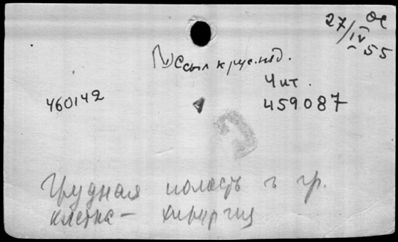 ос
27/IV 55
Ссыл к рус. изд.
Чит.
460142
459087
Грудная полость и гр.
клетка — хирургия